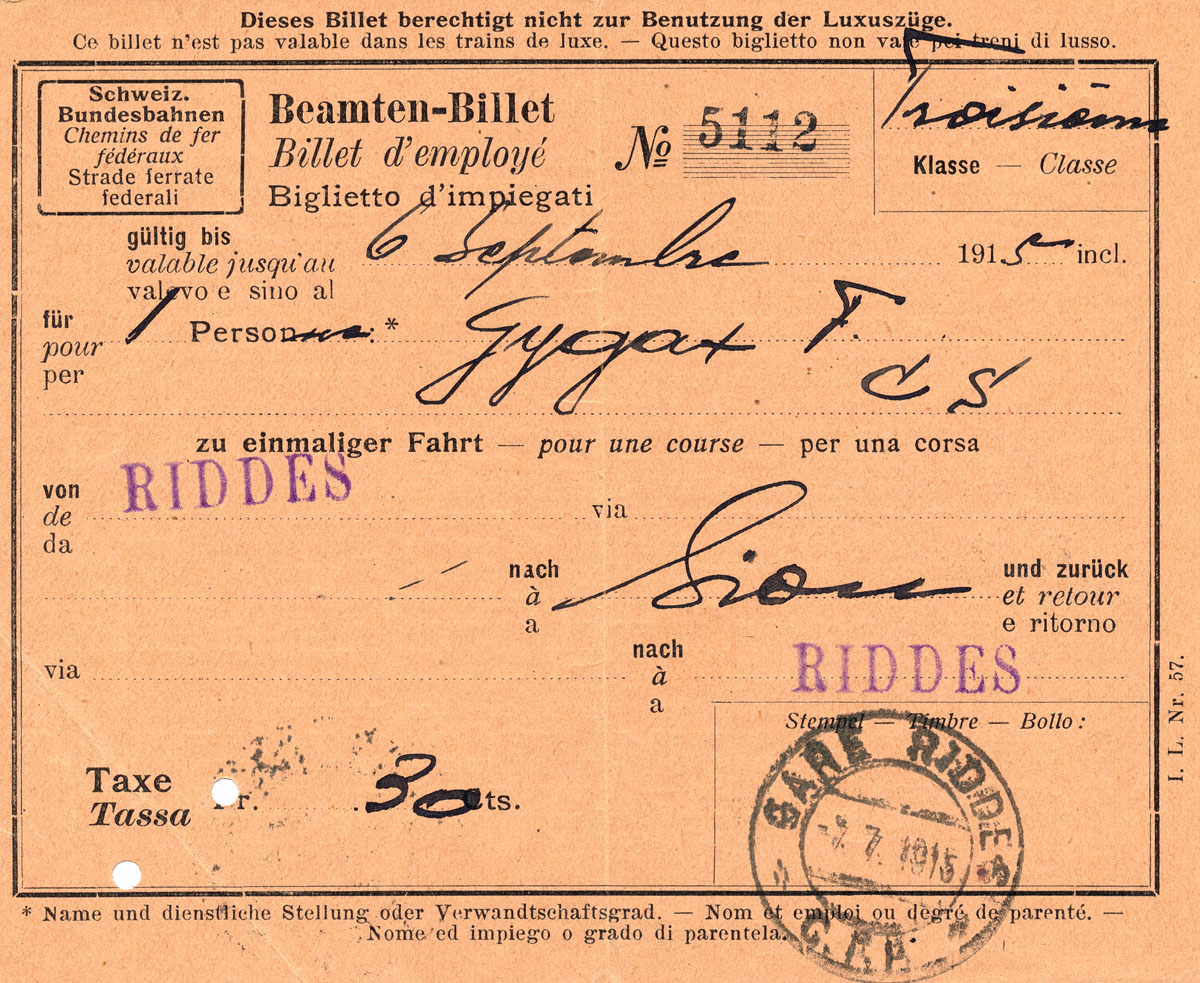 Dieses Billet berechtigt nicht zur Benutzung der Luxuszüge.
Ce billet n'est pas valable dans les trains de luxe. — Questo biglietto non vale pei treni di lusso.
Schweiz.
Bundesbahnen
Chemins de fer
fédéraux
Strade ferrate
federali
Beamten-Billet
Billet d'employé
Biglietto d'impiegati
No 5112
Troisième
Klasse — Classe
gültig bis
valable jusqu'au
valevo e sino al
6 Septembre 1915 incl.
für
pour
per
1 Person : * Gygax F.
C S
zu einmaliger Fahrt — pour une course — per una corsa
von
de
da
RIDDES
via
nach
à
a
Sion
und zurück
et retour
e ritorno
via
nach
à
a
RIDDES
Stempel — Timbre — Bollo :
Taxe
Tassa
Fr. 30 Cts.
GARE RIDDES
-7.7.1915
C.F.F.
I. L. Nr. 57.
* Name und dienstliche Stellung oder Verwandtschaftsgrad. — Nom et emploi ou degré de parenté. —
Nome ed impiego o grado di parentela.